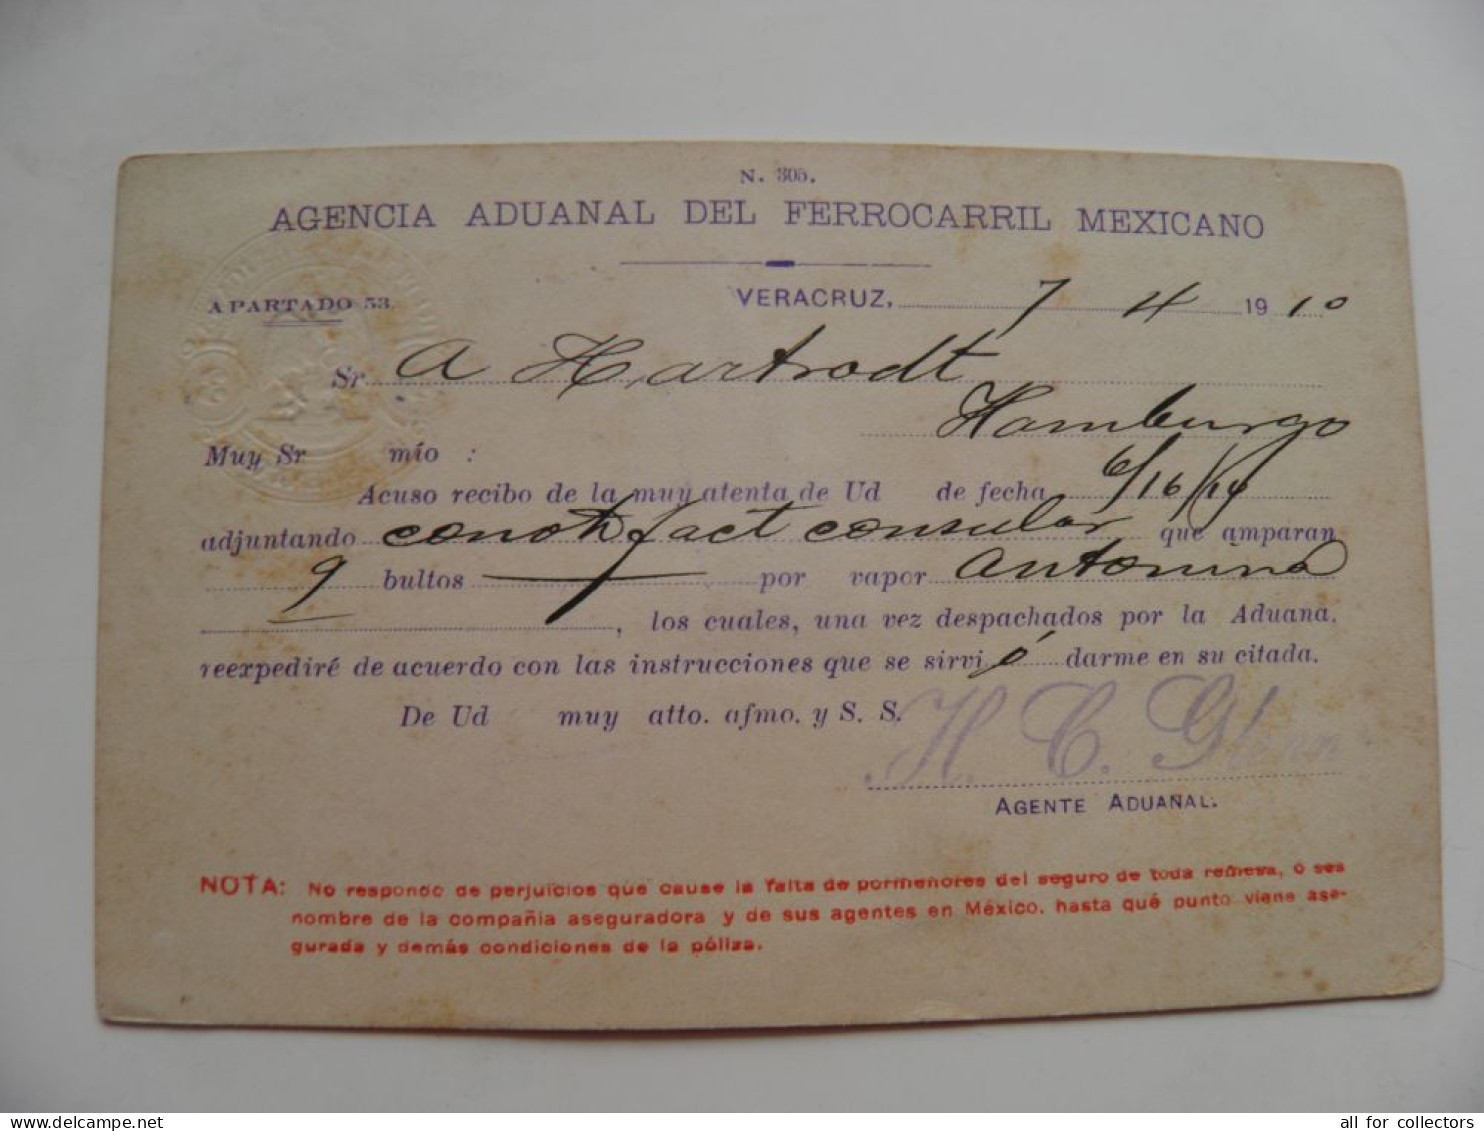 N. 305.
AGENCIA ADUANAL DEL FERROCARRIL MEXICANO
APARTADO 53.
VERACRUZ, 7 4 1910
Sr. A Hartrodt
Hamburgo
Muy Sr mío :
Acuso recibo de la muy atenta de Ud de fecha 6/16/14
adjuntando conot fact consular que amparan
9 bultos por vapor Antonina
, los cuales, una vez despachados por la Aduana,
reexpediré de acuerdo con las instrucciones que se sirvió darme en su citada.
De Ud muy atto. afmo. y S. S.
H. C.
AGENTE ADUANAL.
NOTA: No respondo de perjuicios que cause la falta de pormenores del seguro de toda remesa, ó sea
nombre de la compañia aseguradora y de sus agentes en México, hasta qué punto viene ase-
gurada y demás condiciones de la póliza.
all for collectors